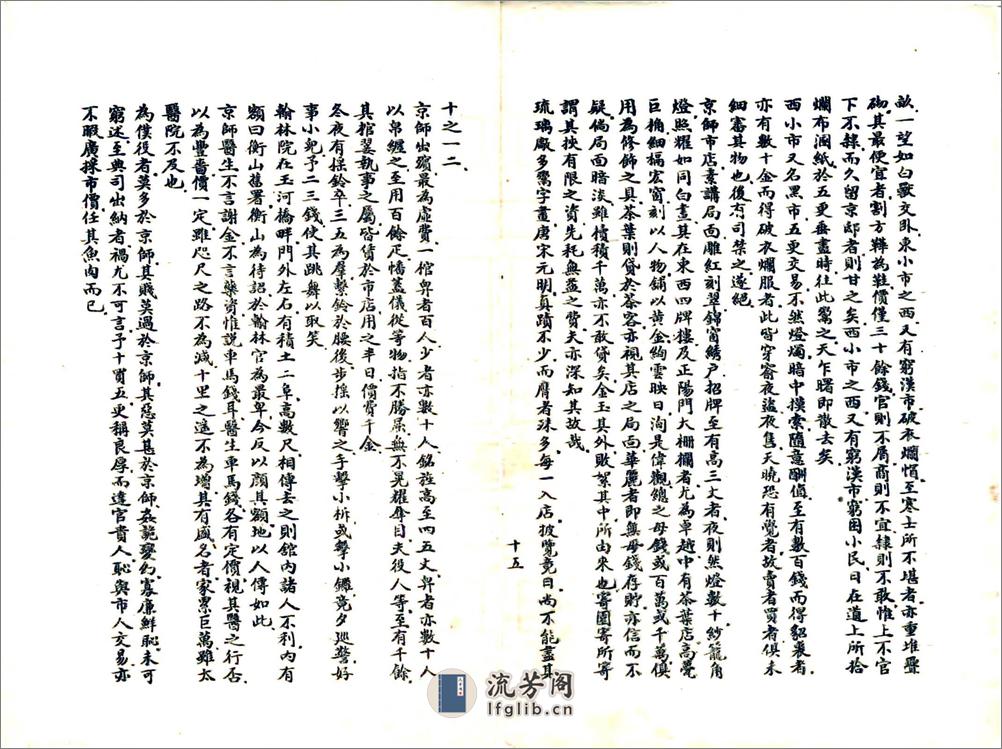 畝一望如白獸交卧東小市之西又有窮漢市破衣爛帽至寒士所不堪者亦重堆疊
砌其最便宜者割方鞾為鞋價僅三十餘錢官則不屑商則不宜隸則不敢惟上不官
下不隸而久留京邸者則甘之矣西小市之西又有窮漢市窮困小民日在道上所拾
爛布溷紙於五更垂盡時往此鬻之天乍曙即散去矣
西小市又名黑市五更交易不然燈燭暗中摸索隨意酬值至有數百錢而得貂裘者
亦有數十金而得破衣爛服者此皆穿窬夜盜夜售天曉恐有覺者故賣者買者俱未
細審其物也後有司禁之遂絕
京師市店素講局面雕紅刻翠錦窗綉户招牌至有高三丈者夜則然燈數十紗籠角
燈照耀如同白晝其在東西四牌樓及正陽門大柵欄者尤為卓越中有茶葉店高甍
巨桷細槅宏窗刻以人物鋪以黃金絢雲映日洵是偉觀總之母錢或百萬或千萬俱
用為修飾之具茶葉則貸於茶客亦視其店之局面華麗者即無母錢存貯亦信而不
疑倘局面暗淡雖櫝積千萬亦不敢貸矣金玉其外敗絮其中所由來也寄園寄所寄
謂其挾有限之資先耗無益之費夫亦深知其故哉
琉璃廠多鬻字畫唐宋元明真蹟不少而膺者殊多每一入店披覽竟日尚不能盡其
十五
十之一二
京師出殯最為虛費一棺舁者百人少者亦數十人銘旌高至四五丈舁者亦數十人
以帛纏之至用百餘疋幡蓋儀從等物指不勝屈無不晃耀奪目夫役人等至有千餘
其棺罩執事之屬皆賃於市店用之半日價費千金
冬夜有揺鈴卒三五為羣繫鈴於腰後步揺以響之手擊小柝或擊小鑼竟夕巡警好
事小兒予二三錢使其跳舞以取笑
翰林院在玉河橋畔門外左右有積土二阜高數尺相傳去之則館內諸人不利內有
額曰衡山舊署衡山為待詔於翰林官為最卑今反以顏其額地以人傳如此
京師醫生不言謝金不言藥資惟說車馬錢耳醫生車馬錢各有定價視其醫之行否
以為豐嗇價一定雖咫尺之路不為減十里之遠不為增其有盛名者家累巨萬雖太
醫院不及也
為僕役者莫多於京師其賤莫過於京師其惡莫甚於京師姦詭變幻寡廉鮮恥未可
窮述至典司出納者禍尤不可言予十買五更稱良厚而達官貴人恥與市人交易亦
不暇廣採市價任其魚肉而已
流芳阁
lfglib.cn